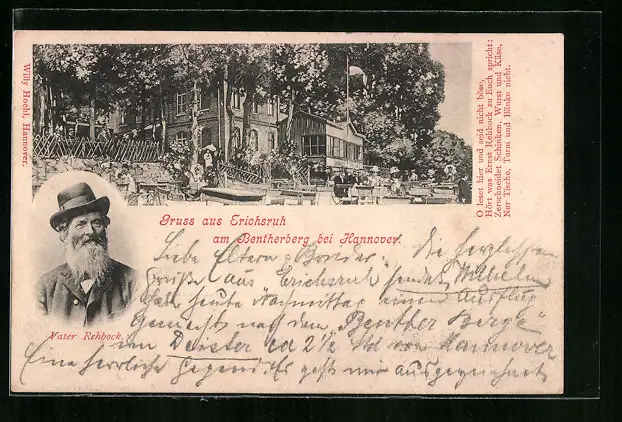 Willy Hoohl, Hannover.
O leset hier und seid nicht böse,
Hört was Ernst Rehbock zu Euch spricht:
Zerschneidet Schinken, Wurst und Käse,
Nur Tische, Turm und Bänke nicht.
Gruss aus Erichsruh
am Bentherberg bei Hannover.
Vater Rehbock.
Liebe Eltern u. Brüder! Die herzlichsten
Grüße aus Erichsruh sendet Wilhelm
Habe heute Nachmittag einen Ausflug
gemacht nach dem "Benther Berge"
am Deister ca 2½ Std von Hannover
Eine herrliche Gegend. Es geht mir ausgezeichnet